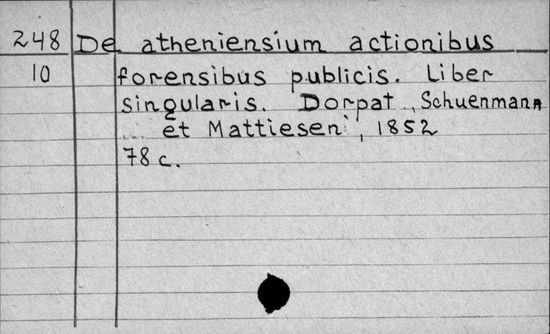 248 De atheniensium actionibus
10 forensibus publicis. Liber
singularis. Dorpat, Schuenmann
et Mattiesen, 1852
78 c.